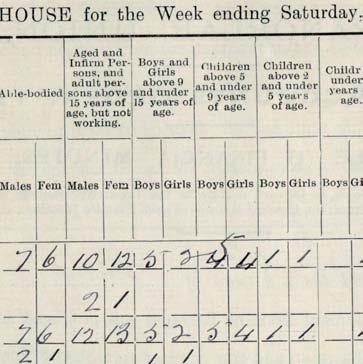 HOUSE for the Week ending Saturday,
Able-bodied | Aged and Infirm Persons, and adult persons above 15 years of age, but not working. | Boys and Girls above 9 and under 15 years of age. | Children above 5 and under 9 years of age. | Children above 2 and under 5 years of age. | Childr under years age
Males Fem Males Fem Boys Girls Boys Girls Boys Girls Boys Gi
7 6 10 12 5 2 5 4 1 1
2 1
7 6 12 13 5 2 5 4 1 1
2 1 1 1